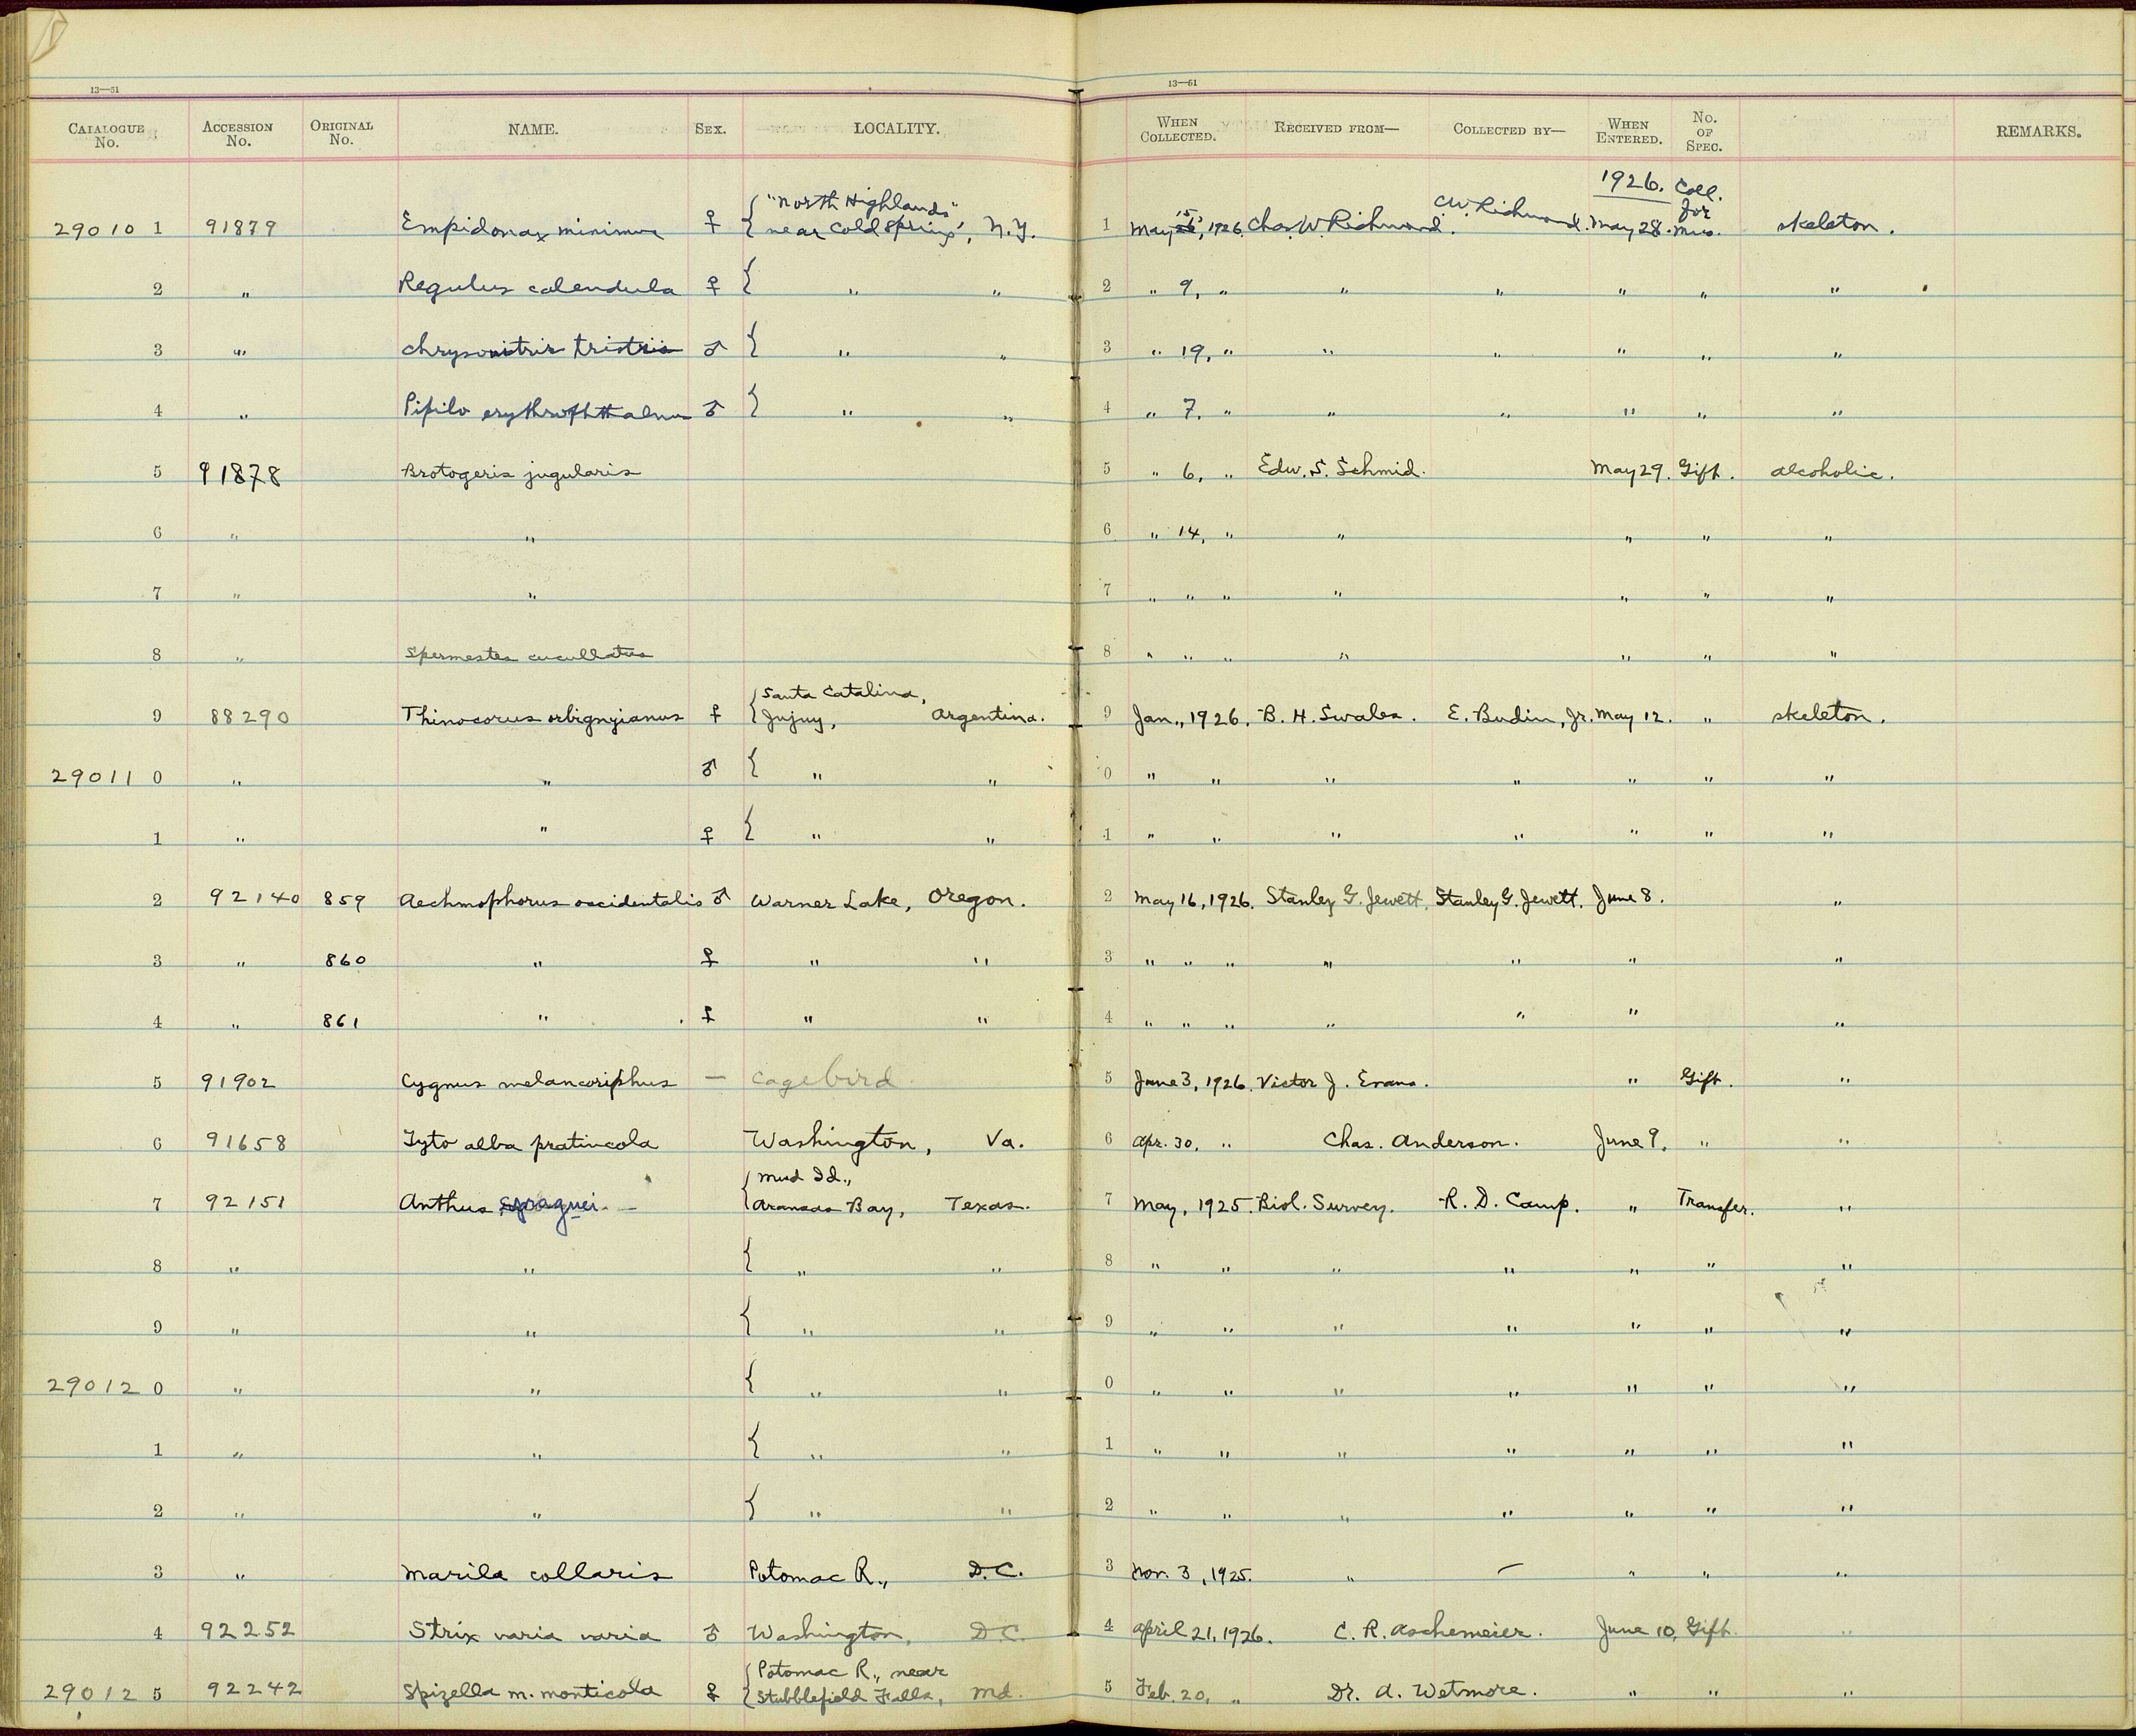 13—51
13—51
CATALOGUE No. ACCESSION No. ORIGINAL No. NAME. SEX. LOCALITY. WHEN COLLECTED. RECEIVED FROM— COLLECTED BY— WHEN ENTERED. No. OF SPEC. REMARKS.
1926. Coll.
"North Highlands" for
29010 1 91879 Empidonax minimus ♀ { near Cold Spring, N.Y. 1 May 15, 1926. Chas. W. Richmond. C.W. Richmond. May 28. Mus. skeleton.
2 " Regulus calendula ♀ { " " 2 " 9, " " " " " "
3 " Chrysomitris tristis ♂ { " " 3 " 19, " " " " " "
4 " Pipilo erythrophthalmus ♂ { " " 4 " 7, " " " " " "
5 91878 Brotogeris jugularis 5 " 6, " Edw. S. Schmid. May 29. Gift. alcoholic.
6 " " 6 " 14, " " " " "
7 " " 7 " " " " " " "
8 " Spermestes cucullatus 8 " " " " " " "
{ Santa Catalina,
9 88290 Thinocorus orbignyianus ♀ Jujuy, Argentina. 9 Jan., 1926. B. H. Swales. E. Budin, Jr. May 12. " skeleton.
29011 0 " " ♂ { " " 0 " " " " " " "
1 " " ♀ { " " 1 " " " " " " "
2 92140 859 Aechmophorus occidentalis ♂ Warner Lake, Oregon. 2 May 16, 1926. Stanley G. Jewett. Stanley G. Jewett. June 8. "
3 " 860 " ♀ " " 3 " " " " " " "
4 " 861 " ♀ " " 4 " " " " " " "
5 91902 Cygnus melancoriphus — Cagebird 5 June 3, 1926. Victor J. Evans. " Gift. "
6 91658 Tyto alba pratincola Washington, Va. 6 Apr. 30, " Chas. Anderson. June 9. " "
{ Mud Id.,
7 92151 Anthus spraguei. — Aransas Bay, Texas. 7 May, 1925. Biol. Survey. R. D. Camp. " Transfer. "
8 " " { " " 8 " " " " " " "
9 " " { " " 9 " " " " " " "
29012 0 " " { " " 0 " " " " " " "
1 " " { " " 1 " " " " " " "
2 " " { " " 2 " " " " " " "
3 " Marila collaris Potomac R., D.C. 3 Nov. 3, 1925. " — " " "
4 92252 Strix varia varia ♂ Washington, D.C. 4 April 21, 1926. C. R. Aschemeier. June 10, Gift. "
{ Potomac R., near
29012 5 92242 Spizella m. monticola ♀ Stubblefield Falls, Md. 5 Feb. 20, " Dr. A. Wetmore. " " "